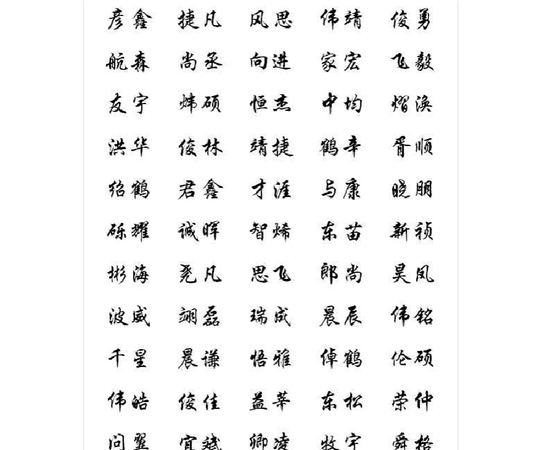 彦鑫 捷凡 风思 伟靖 俊勇
航森 尚丞 向进 家宏 飞毅
友宇 炜硕 恒杰 中均 熠涣
洪华 俊林 靖捷 鹤辛 胥顺
绍鹤 君鑫 才涯 与康 晓朋
砾耀 诚晖 智烯 东苗 新祯
彬海 尧凡 思飞 郎尚 昊凤
波威 翊磊 瑞成 晨辰 伟铭
千星 晨谦 悟雅 倬鹤 伦硕
伟皓 俊佳 益莘 东松 荣仲
问翼 宜斌 卿凌 牧宇 舜格